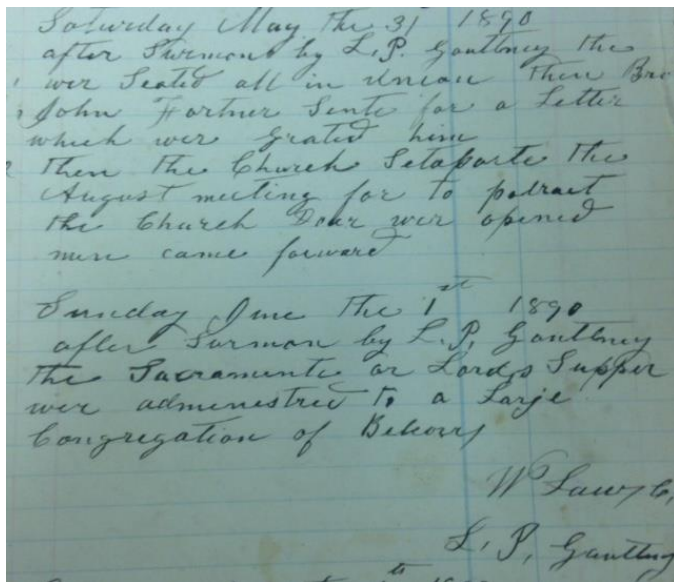 Saturday May the 31 1890
after Surmon by L. P. Gauttney the
wer Seated all in Union then Bro
John Fortner Sente for a Letter
which wer grated him
then the Church Setaparte the
August meeting for to potract
the Church Doar wer opened
nun came forward
Sunday June the 1st 1890
after Surmon by L. P. Gauttney
the Sacramente or Lords Supper
wer admenestred to a Large
Congregation of
W C,
L. P. Gauttney